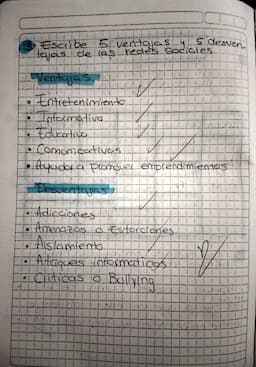 Escribe 5 ventajas y 5 desven
tajas de las redes sociales
Ventajas
• Entretenimiento
• Informativa
• Educativa
• Comunicativas
• Ayudar a promover emprendimientos
Desventajas
• Adicciones
• Amenazas o Estorciones
• Aislamiento
• Ataques informaticos
• Criticas o Bullying